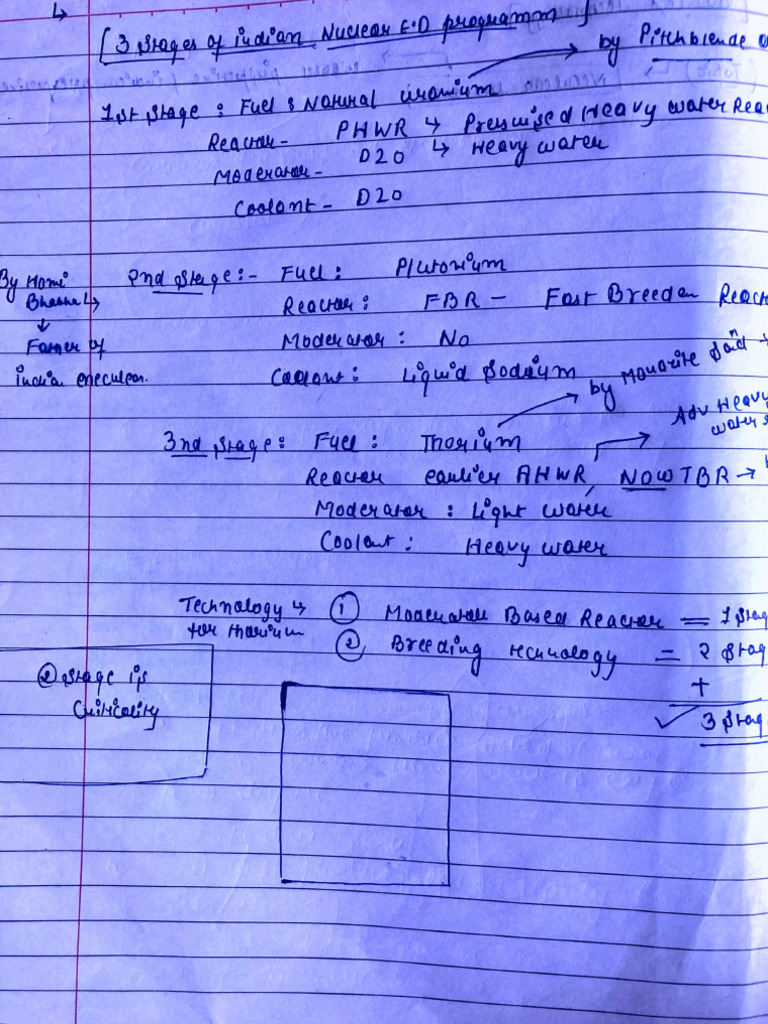 [3 stages of indian Nuclear E.D programm]
by Pitchblende
1st stage : Fuel : Natural uranium
Reactor - PHWR ↳ Presurised Heavy water Reac
Moderator - D2O ↳ Heavy water
Coolant - D2O
By Homi Bhabha ↳
↓
Father of
india nuculear.
2nd stage :- Fuel : Plutonium
Reactor : FBR - Fast Breeder Reac
Moderator : No
Coolant : Liquid Sodium
by Monazite Sand
3nd stage : Fuel : Thorium
Adv Heavy water
Reactor earlier AHWR, NOW TBR →
Moderator : Light water
Coolant : Heavy water
Technology ↳ for thorium
① Moderator Based Reactor = 1 Stag
② Breeding technology = 2 Stag
+
✓ 3 Stag
② stage is
Criticality